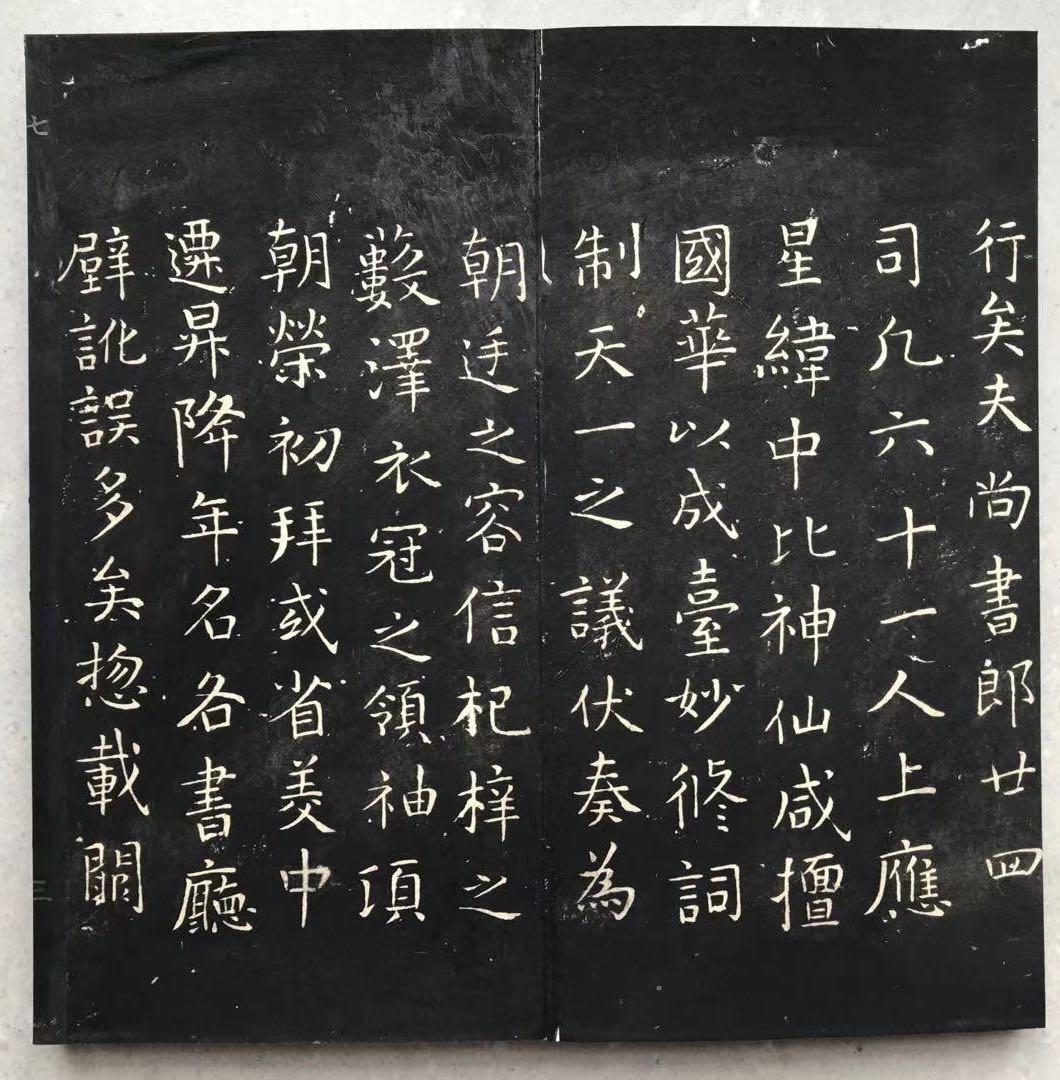 行矣夫尚書郎廿四
司凡六十一人上應
星緯中比神仙咸擅
國華以成臺妙脩詞
制天一之議伏奏為
朝廷之容信杞梓之
藪澤衣冠之領袖頃
朝榮初拜或省美中
遷昇降年名各書廳
壁訛誤多矣揔載闕
七
三